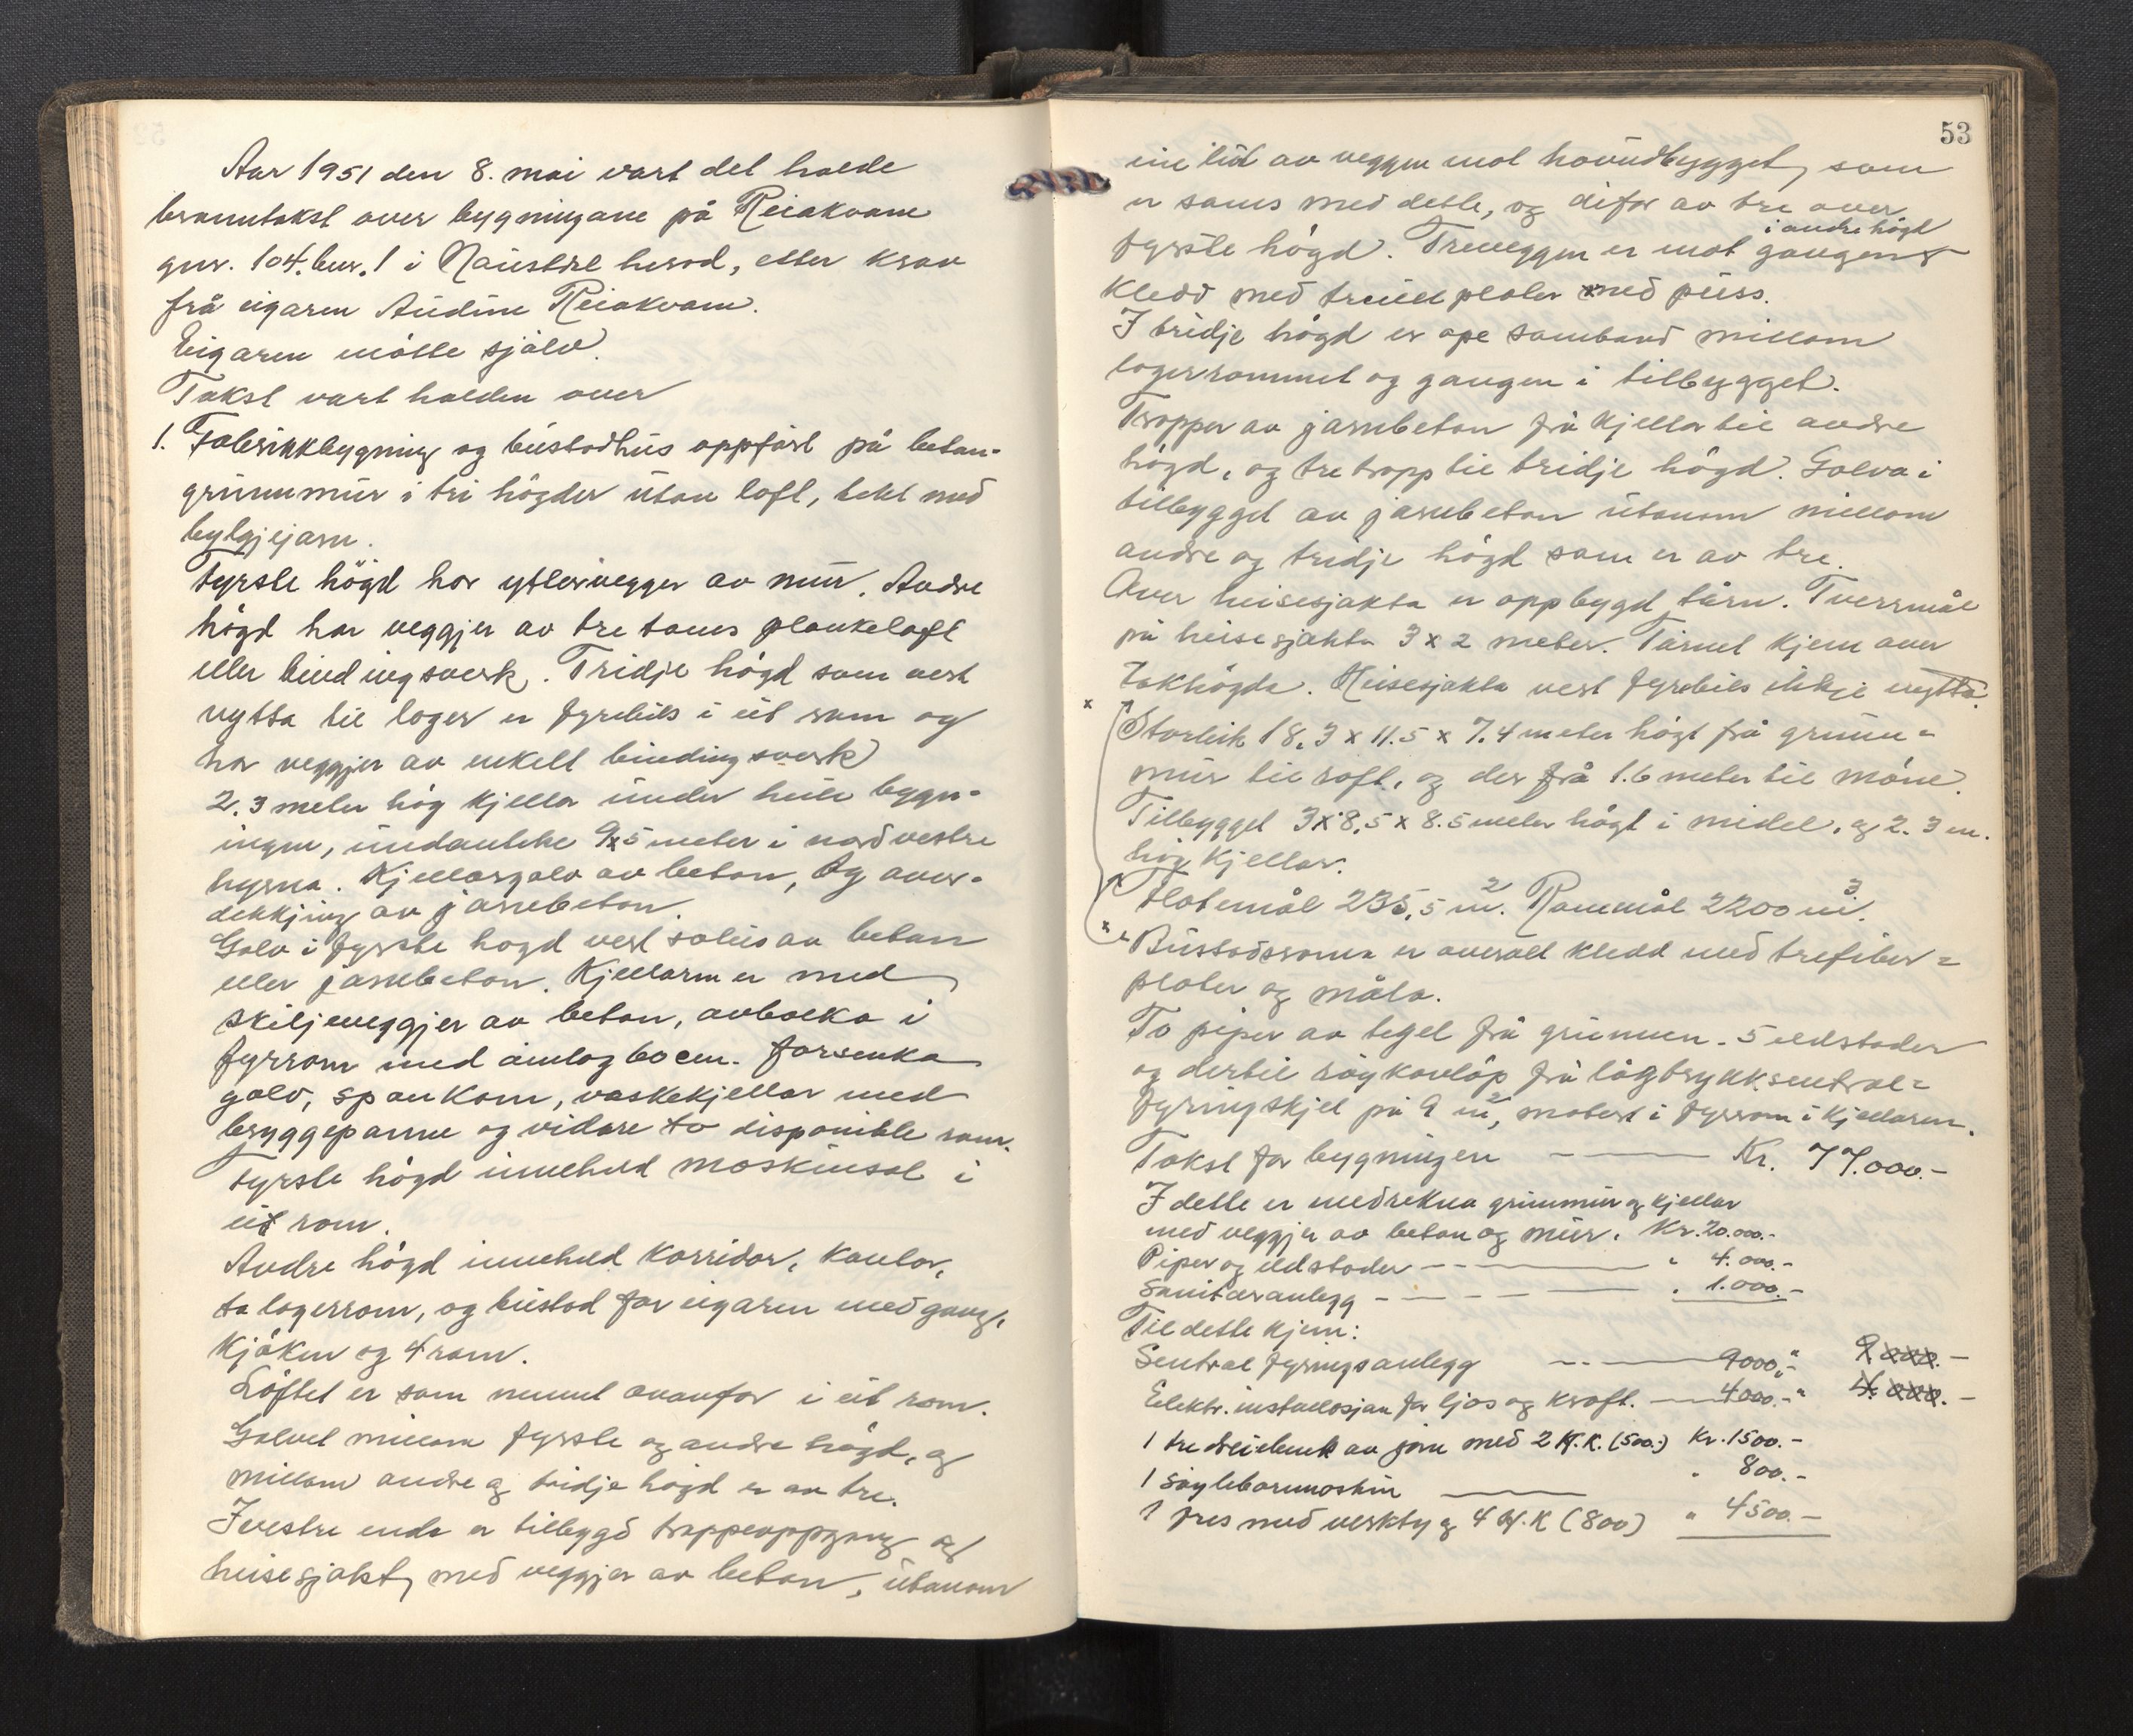 Aar 1951 den 8. mai vart det halde
branntakst over bygningane på Reiakvam
gnr. 104. bnr. 1 i Naustdal herad, etter krav
frå eigaren Audun Reiakvam.
Eigaren møtte sjølv.
Takst vart halden over
1. Fabrikkbygning og bustadhus oppført på beton-
grunnmur i tri høgder utan loft, tekt med
bylgjejarn.
Fyrste høgd har yttervegger av mur. Andre
høgd har veggjer av tre toms plankelaft
eller bindingsverk. Tridje høgd som vert
nytta til lager er fyrebils i eit rom og
har veggjer av enkelt bindingsverk
2.3 meter høg kjellar under heile bygn-
ingen, undanteke 9x5 meter i nordvestre
hyrna. Kjellargolv av beton, og over-
dekkjing av jarnbeton.
Golv i fyrste høgd vert soleis av beton
eller jarnbeton. Kjellaren er med
skiljeveggjer av beton, avbolka i
fyrrom med omlag 60 cm. forsenka
golv, sponkom, vaskekjellar med
bryggepanne og vidare to disponible rom.
Fyrste høgd inneheld maskinsal i
eit rom.
Andre høgd inneheld korridor, kontor,
to lagerrom, og bustad for eigaren med gang,
kjøken og 4 rom.
Loftet er som nemnt ovanfor i eit rom.
Golvet millom fyrste og andre høgd, og
millom andre og tridje høgd er av tre.
I vestre ende er tilbygd trappeoppgang og
heisesjakt, med veggjer av beton, utanom
53
ein lut av veggen mot hovudbygget, som
er sams med dette, og difor av tre over
i andre høgd
fyrste høgd. Treveggen er mot gangen
kledd med treull plater med puss.
I tridje høgd er ope samband millom
lagerrommet og gangen i tilbygget.
Trapper av jarnbeton frå kjellar til andre
høgd, og tretrapp til tridje høgd. Golva i
tilbygget av jarnbeton utanom millom
andre og tridje høgd som er av tre.
Over heisesjakta er oppbygd tårn. Tverrmål
på heisesjakta 3 x 2 meter. Tårnet kjem over
takhøgda. Heisesjakta vert fyrebils ikkje nytta.
x Storleik 18.3 x 11.5 x 7.4 meter høgt frå grunn-
mur til raft, og der frå 1.6 meter til møne.
Tilbygget 3 x 8,5 x 8.5 meter høgt i midel, og 2.3 m.
høg kjellar.
Flatemål 235,5 m². Romemål 2200 m³.
x Bustadsroma er overalt kledd med trefiber-
plater og måla.
To piper av tegel frå grunnen. 5 eldstader
og dertil røykavløp frå lågtrykksentral-
fyringskjel på 9 m², montert i fyrrom i kjellaren.
Takst for bygningen — Kr. 77.000.-
I dette er medrekna grunnmur og kjellar
med veggjer av beton og mur. Kr. 20.000.-
Piper og eldstader — " 4.000.-
Sanitæranlegg — " 1.000.-
Til dette kjem:
Sentralfyringsanlegg — 9000.-"
Elektr. installasjon for ljos og kraft. — 4000.-"
1 tre dreiebenk av jarn med 2 H.K. (500.-) Kr. 1500.-
1 søyleboremaskin — " 800.-
1 fres med verktyg 4 H.K (800) " 4500.-